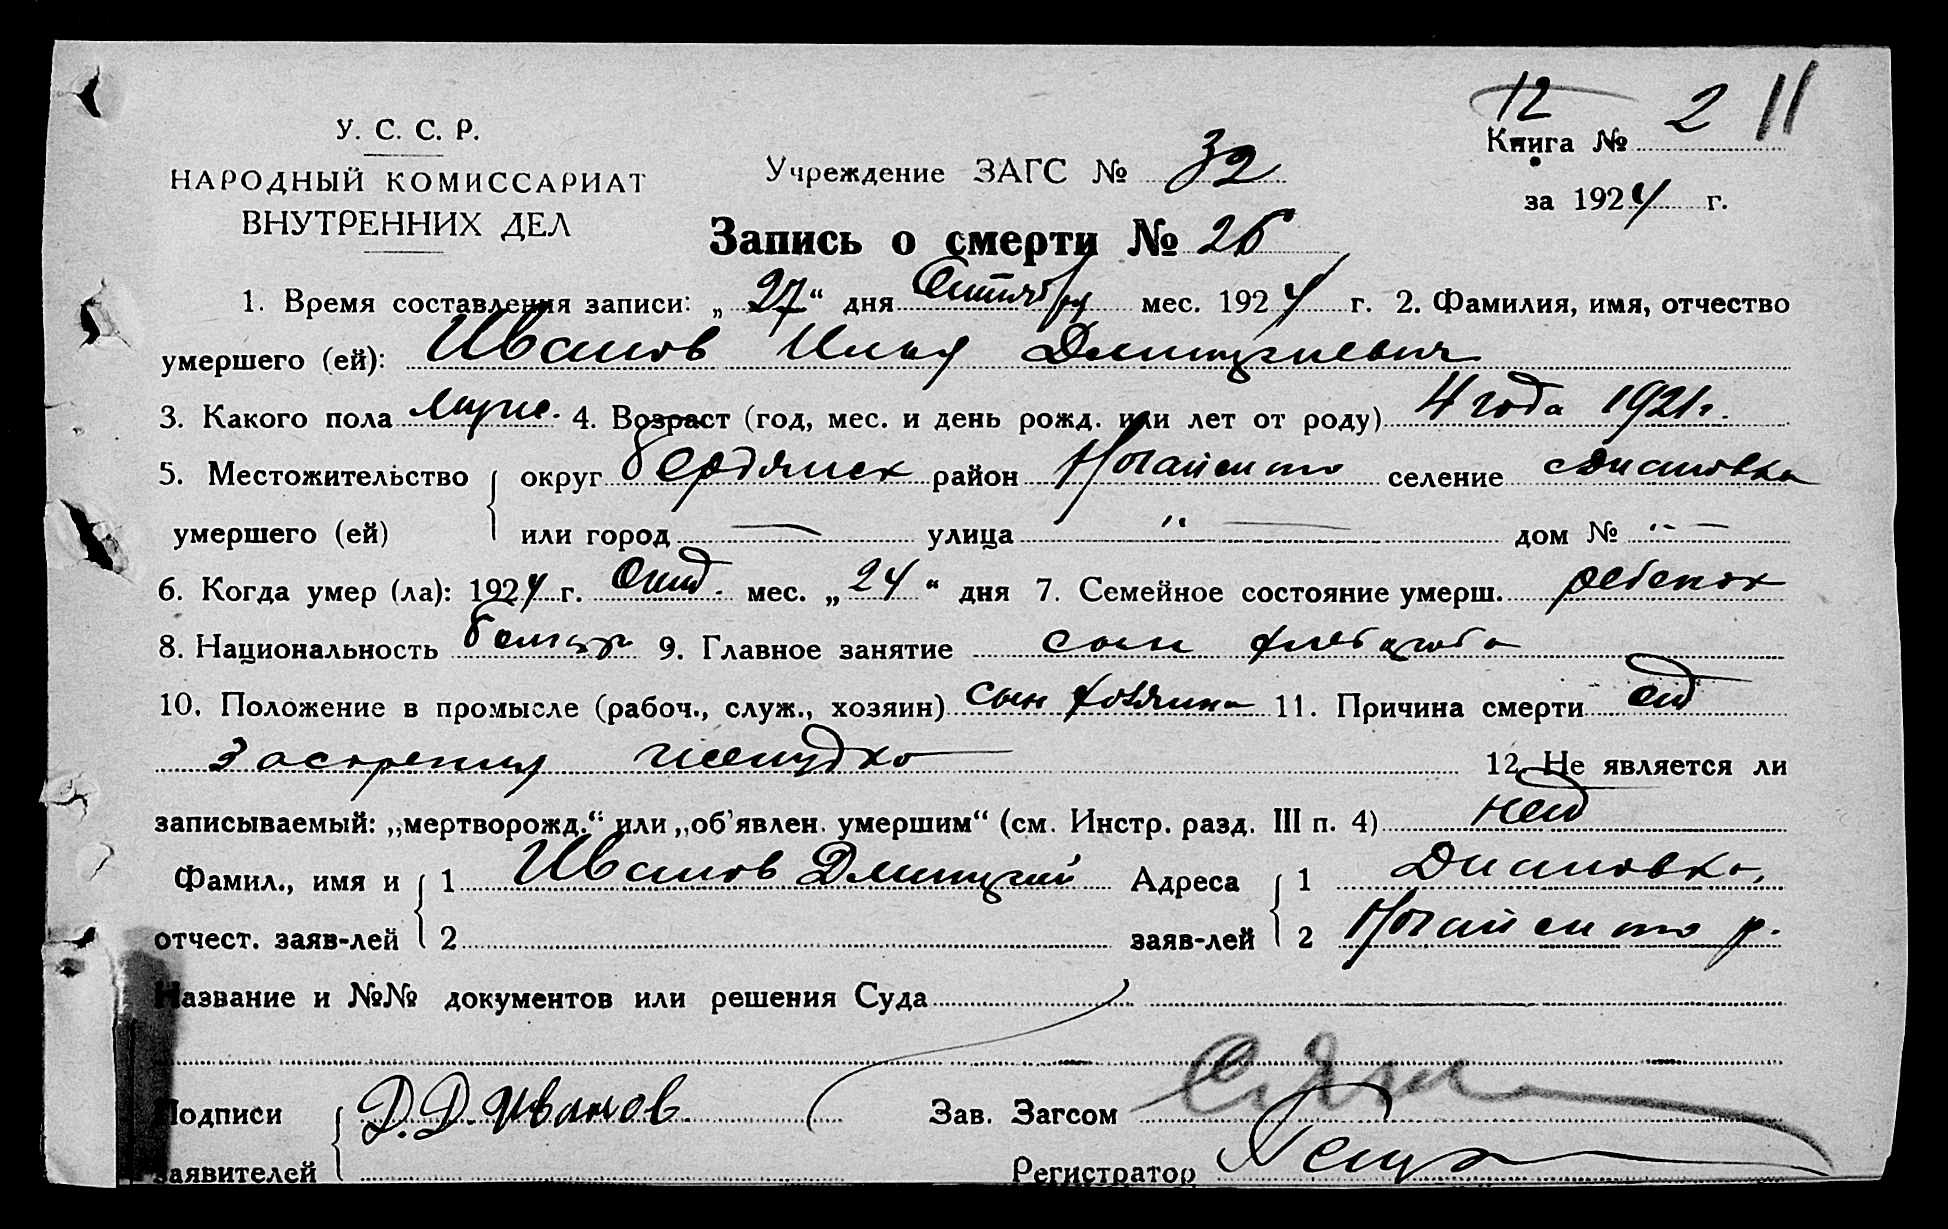 12
2 11
У. С. С. Р.
НАРОДНЫЙ КОМИССАРИАТ
ВНУТРЕННИХ ДЕЛ
Учреждение ЗАГС № 32
Книга №
за 1924 г.
Запись о смерти № 26
1. Время составления записи: „27“ дня мес. 1924 г. 2. Фамилия, имя, отчество
умершего (ей): Иванов Илья Дмитриевич
3. Какого пола муж. 4. Возраст (год, мес. и день рожд. или лет от роду) 4 года 1921 г.
5. Местожительство округ Бердянск район Ногайского селение Диановка
умершего (ей) или город — улица " — дом № " —
6. Когда умер (ла): 1924 г. мес. „24“ дня 7. Семейное состояние умерш. ребенок
8. Национальность болгар 9. Главное занятие сын хлебороба
10. Положение в промысле (рабоч., служ., хозяин) сын хозяина 11. Причина смерти от
засорения желудка 12. Не является ли
записываемый: „мертворожд.“ или „об'явлен. умершим“ (см. Инстр. разд. III п. 4) нет
Фамил., имя и 1 Иванов Дмитрий Адреса 1 Диановка,
отчест. заяв-лей 2 заяв-лей 2 Ногайского р.
Название и №№ документов или решения Суда
Подписи Д. Д. Иванов Зав. Загсом
заявителей Регистратор